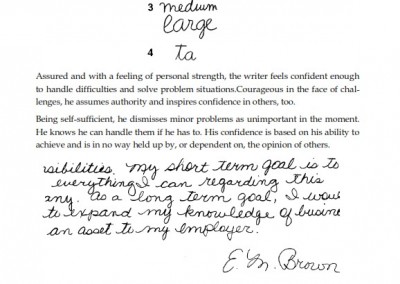 3 medium
large
4 ta
Assured and with a feeling of personal strength, the writer feels confident enough
to handle difficulties and solve problem situations.Courageous in the face of chal-
lenges, he assumes authority and inspires confidence in others, too.
Being self-sufficient, he dismisses minor problems as unimportant in the moment.
He knows he can handle them if he has to. His confidence is based on his ability to
achieve and is in no way held up by, or dependent on, the opinion of others.
sibilities. My short term goal is to
everything I can regarding this
any. As a long term goal, I woul
to expand my knowledge of busine
an asset to my employer.
E. M. Brown